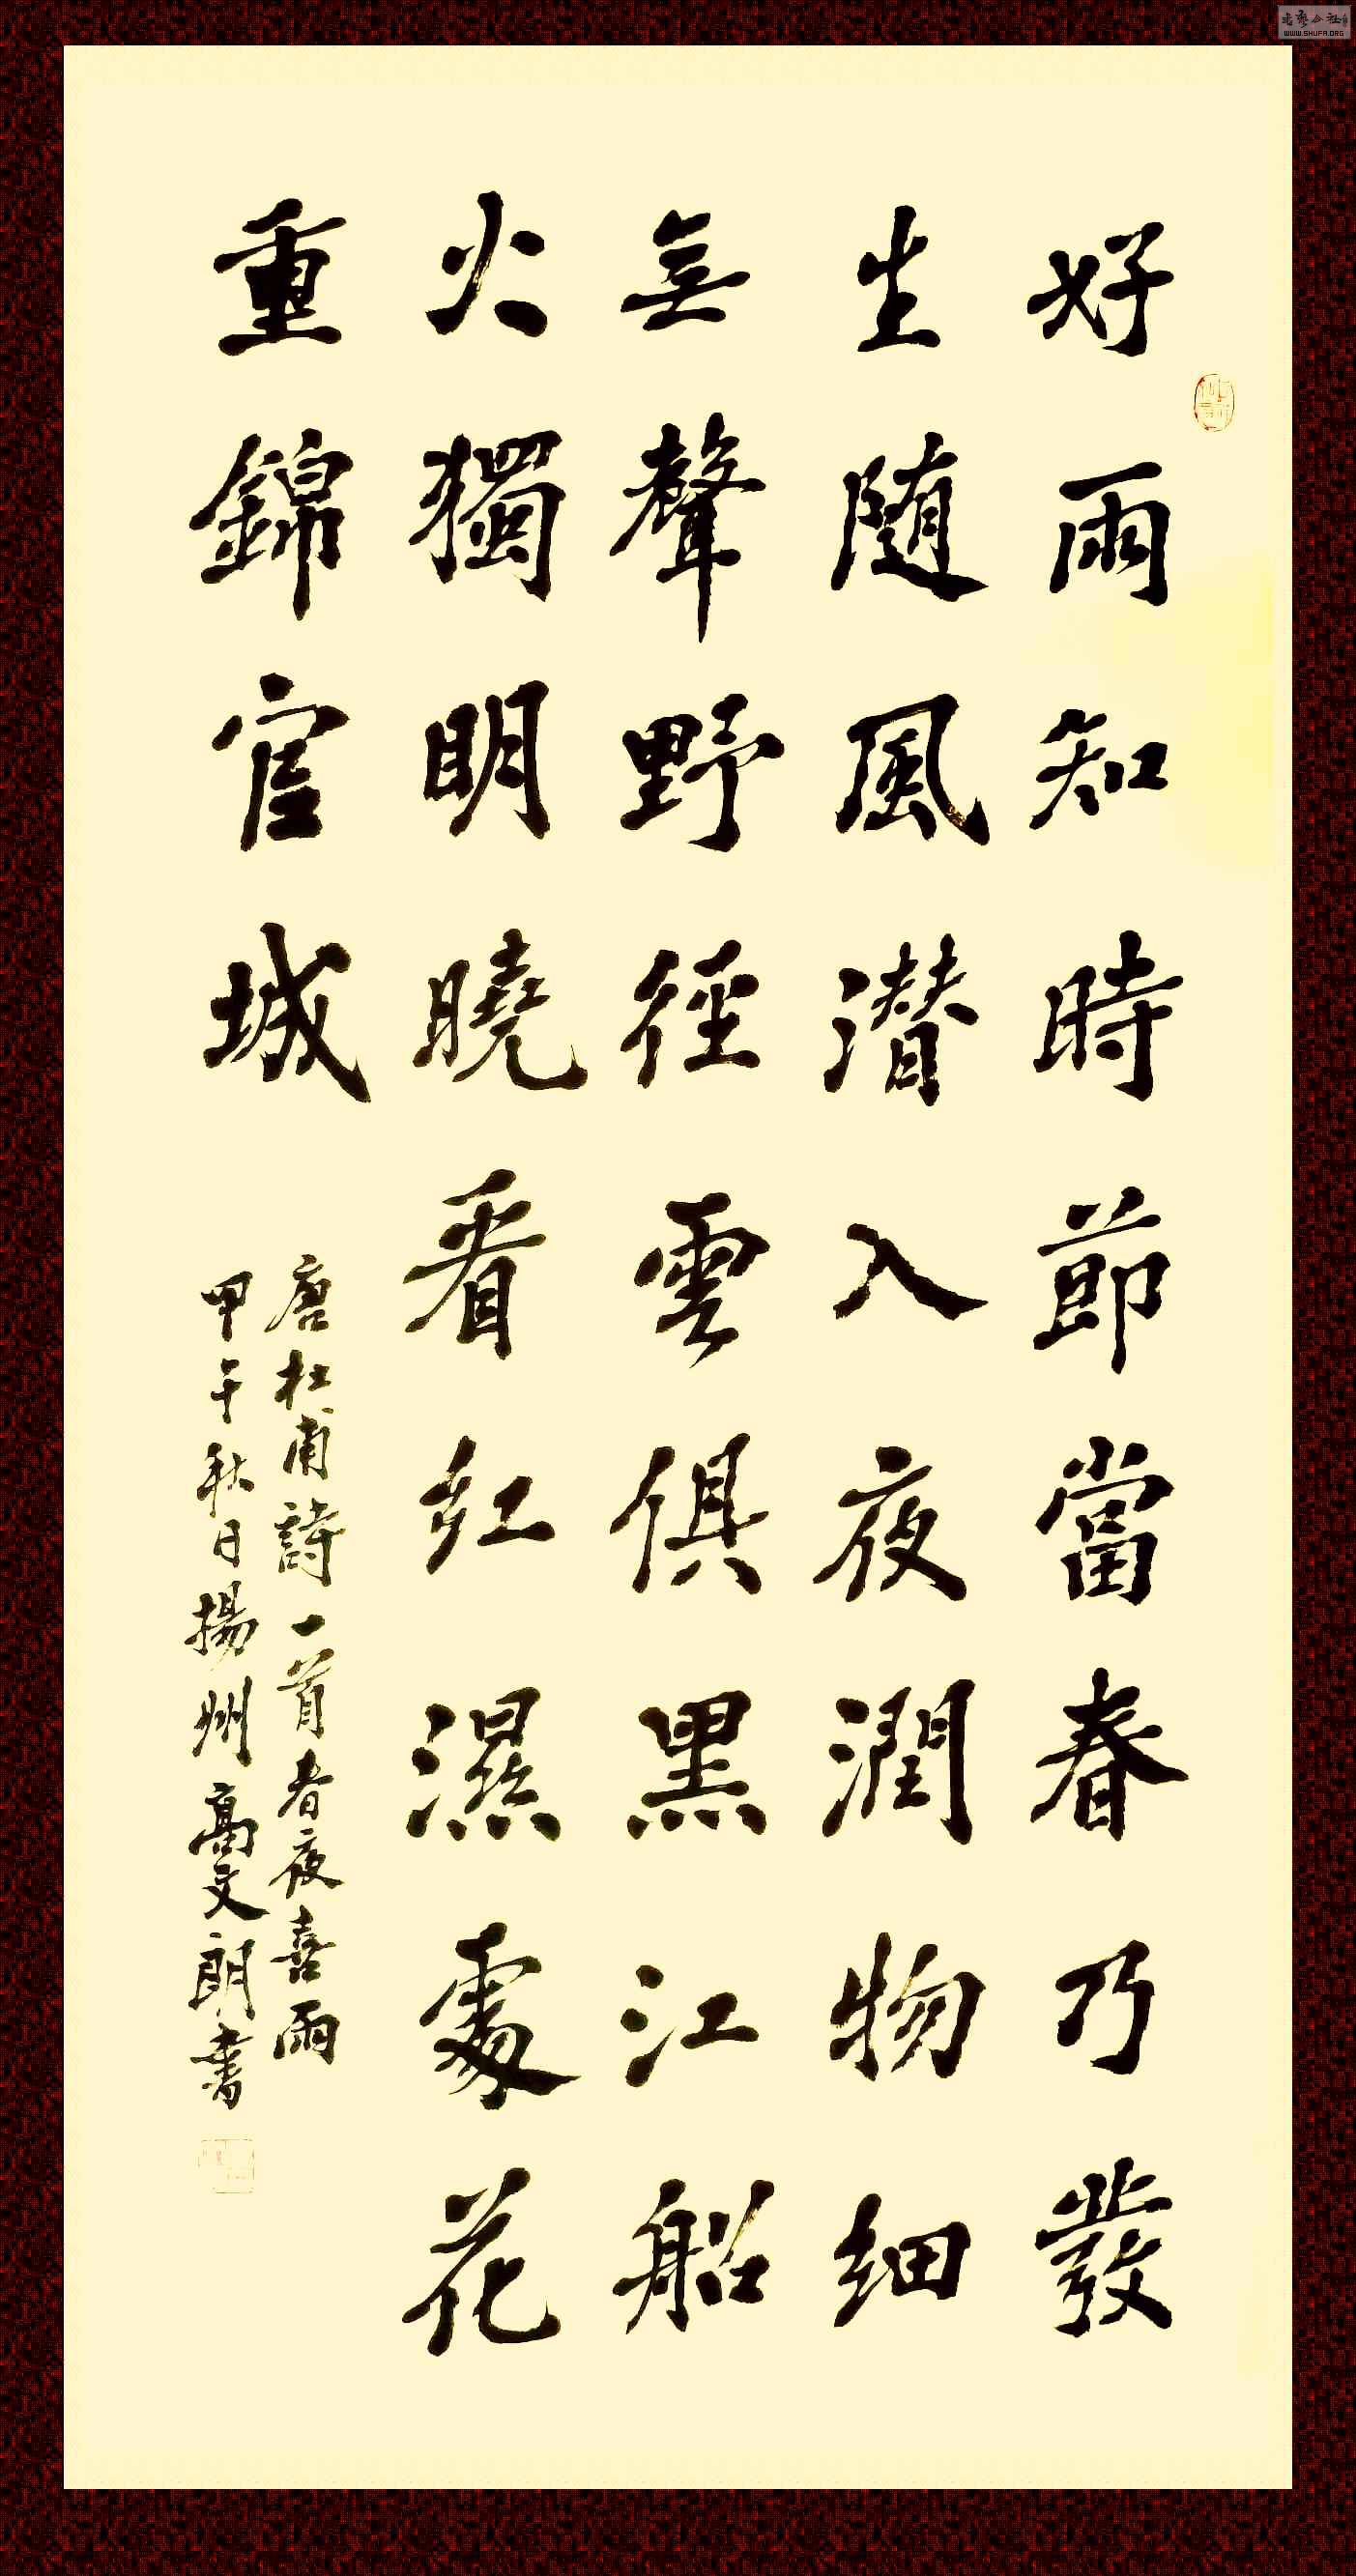 好雨知時節當春乃發
生随風潜入夜潤物细
無聲野徑雲俱黑江船
火獨明曉看红濕處花
重錦官城
唐杜甫詩一首春夜喜雨
甲午秋日揚州高文朗書
WWW.SHUFA.ORG